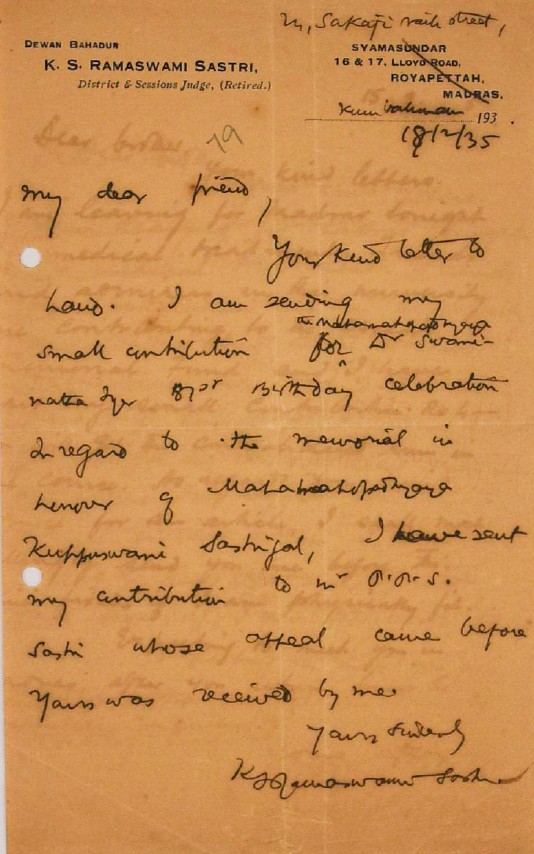 21, Sakaji naik street,
DEWAN BAHADUR
K. S. RAMASWAMI SASTRI,
District & Sessions Judge, (Retired.)
SYAMASUNDAR
16 & 17, LLOYD ROAD,
ROYAPETTAH,
MADRAS.
193
18/2/35
My dear friend,
Your kind letter to
hand. I am sending my
the Mahamahopadhyaya
small contribution for Dr Swami-
natha Iyer 81st Birthday celebration
In regard to the memorial in
honour of Mahamahopadhyaya
Kuppuswami Sastrigal, I have sent
my contribution to Mr P.P.S.
Sastri whose appeal came before
Yours was received by me.
Yours sincerely
K S Ramaswami Sastri